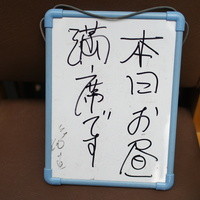 本日お昼
満席です